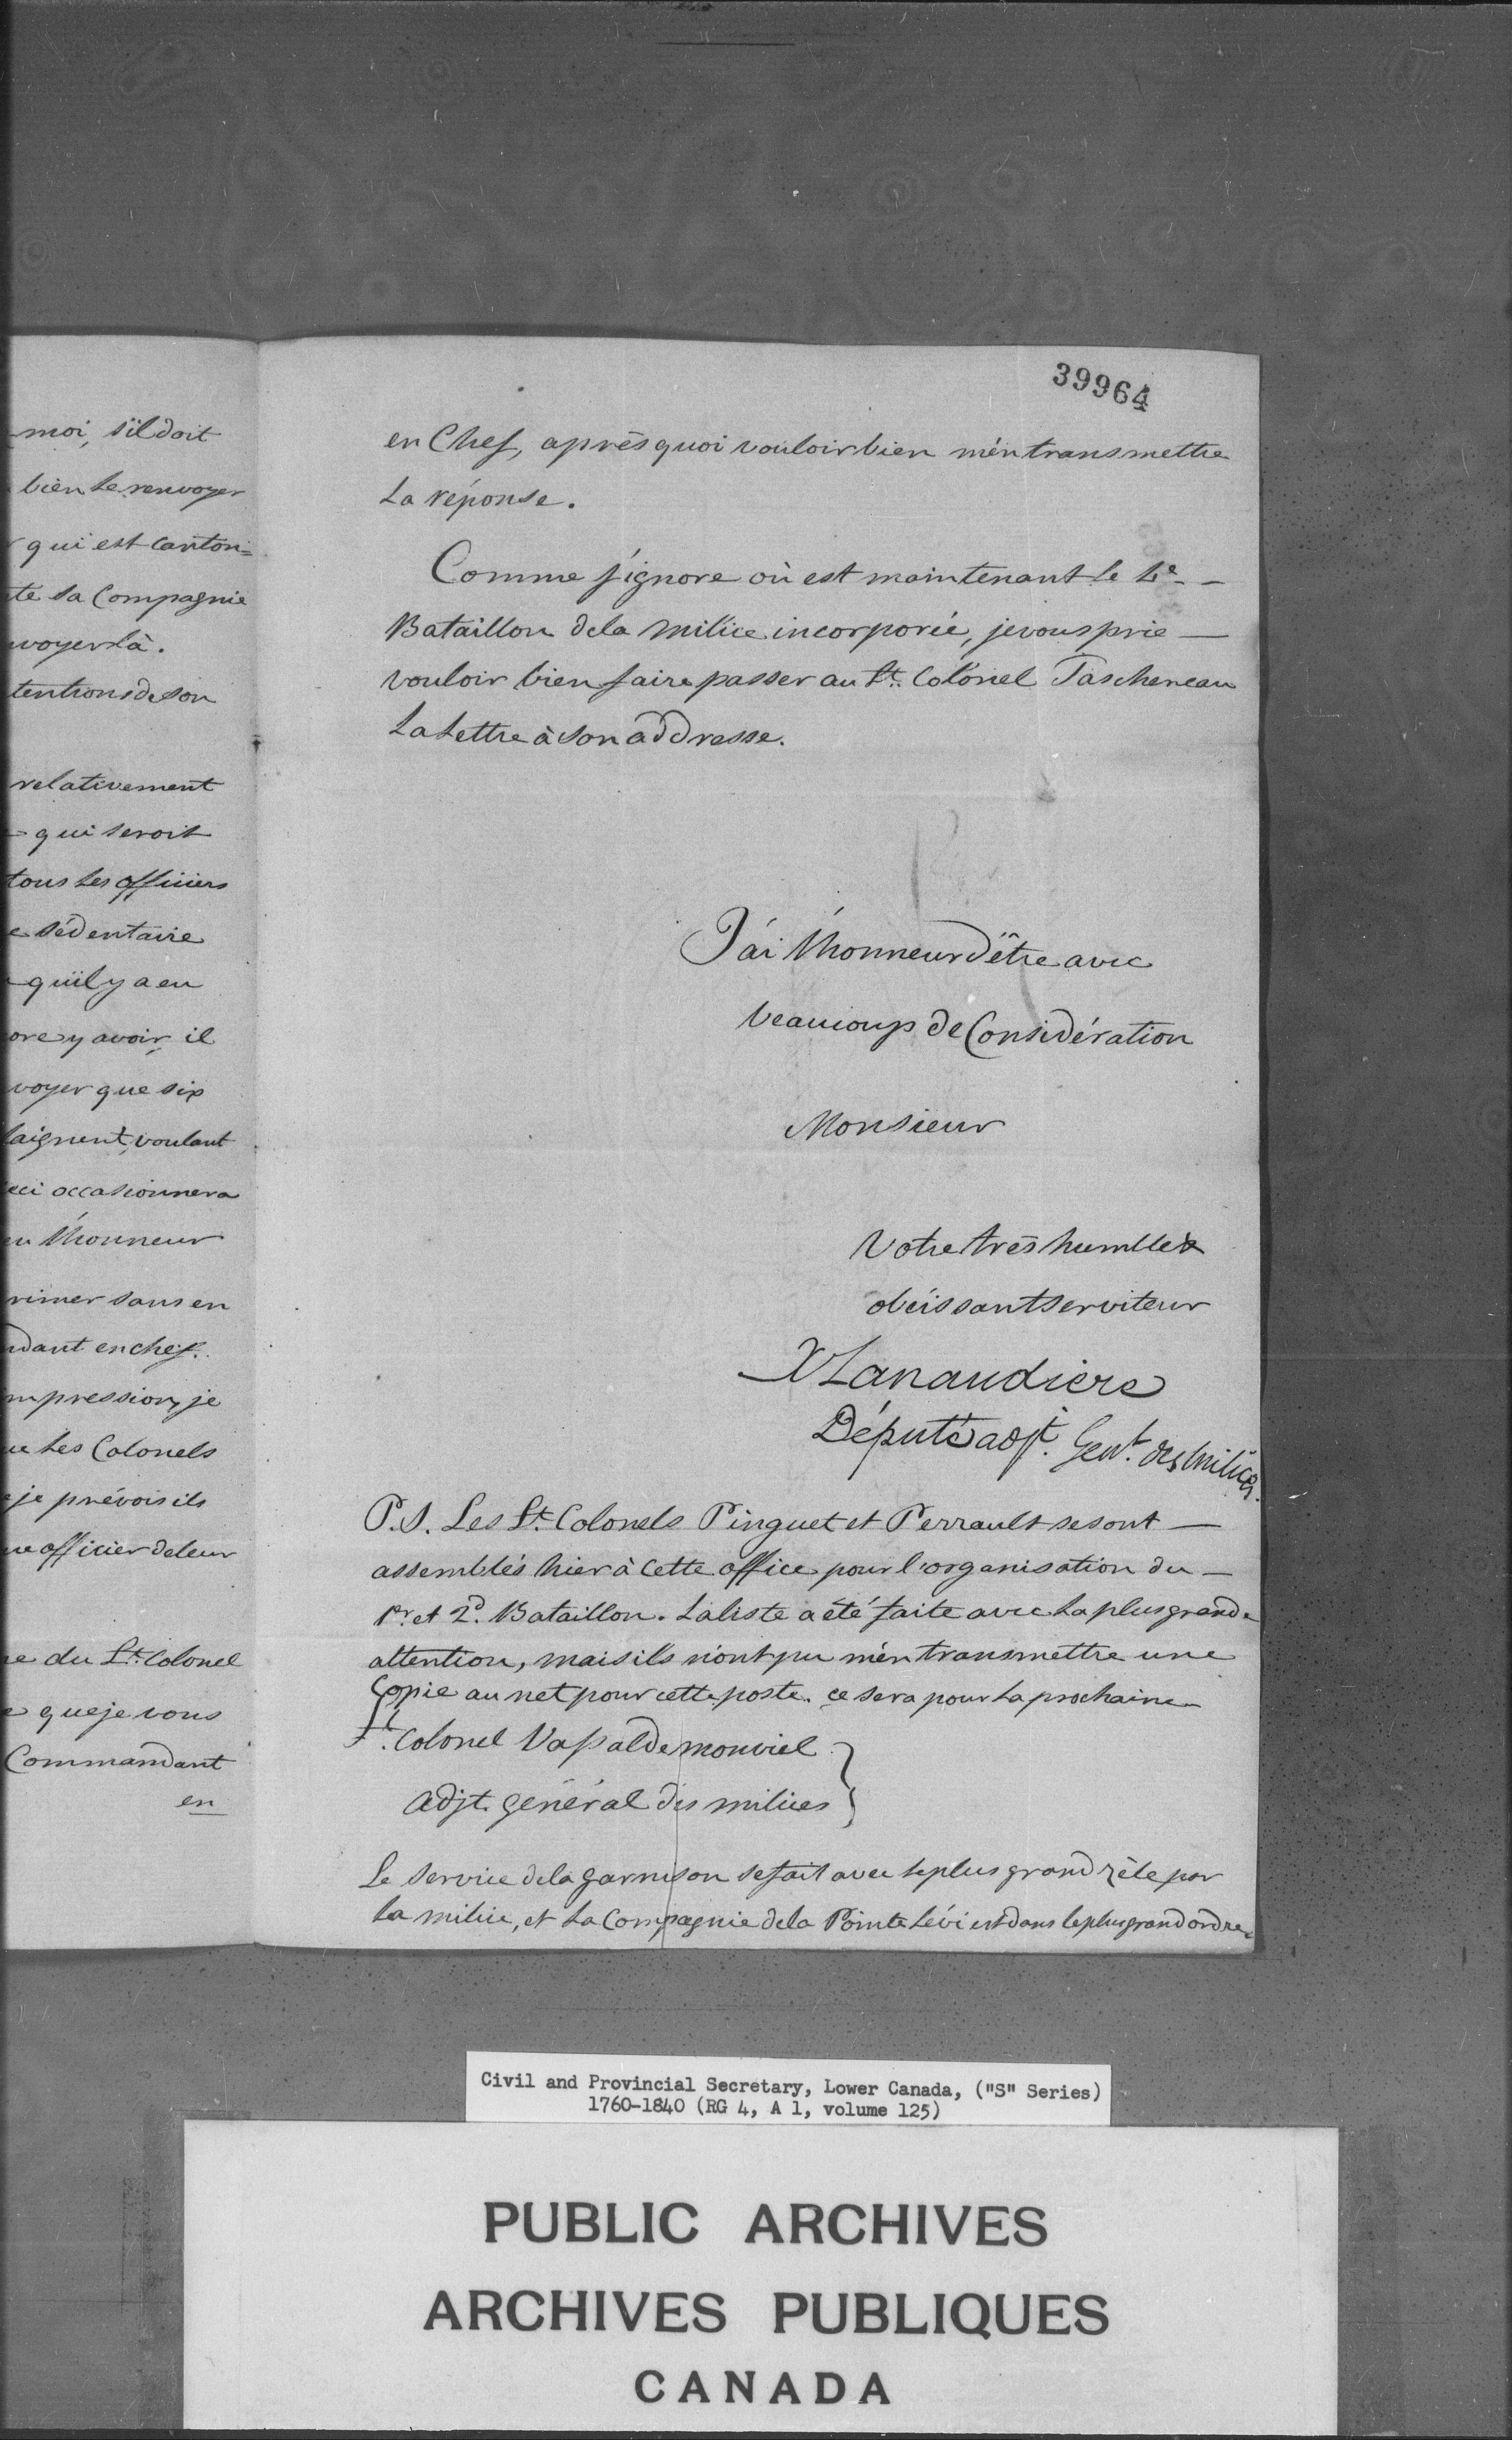 moi, s'il doit
bien le renvoyer
qui est canton=
te sa Compagnie
voyer là.
tentions de son
relativement
qui seroit
tous les officiers
e sédentaire
qu'il y a eu
ore y avoir, il
voyer que six
laignent, voulant
eci occasionnera
eu l'honneur
rimer sans en
ndant en chef.
mpression, je
ue les Colonels
je prévois ils
ue officier de leur
re du Lt. Colonel
e que je vous
Commandant
en
39964
en Chef, après quoi vouloir bien m'en transmettre
La réponse.
Comme j'ignore où est maintenant le
Bataillon de la Milice incorporée, je vous prie —
vouloir bien faire passer au Lt. Colonel Taschereau
La Lettre à son addresse.
J'ai l'honneur d'être avec
beaucoup de Considération
Monsieur
Votre très humble &
obéissant serviteur
X Lanaudiere
Député adjt. Genl. des milices.
P.S. Les Lt. Colonels Pinguet et Perrault se sont —
assemblés hier à cette office pour l'organisation du —
1er et 2d. Bataillon. La liste a été faite avec la plus grande
attention, mais ils n'ont pu m'en transmettre une
Copie au net pour cette poste. ce sera pour la prochaine
Lt. Colonel Vassal de monviel }
adjt. général des milices }
Le service de la garnison se fait avec le plus grand zèle par
la milice, et la Compagnie de la Pointe Lévi est dans le plus grand ordre.
Civil and Provincial Secretary, Lower Canada, ("S" Series)
1760-1840 (RG 4, A 1, volume 125)
PUBLIC ARCHIVES
ARCHIVES PUBLIQUES
CANADA